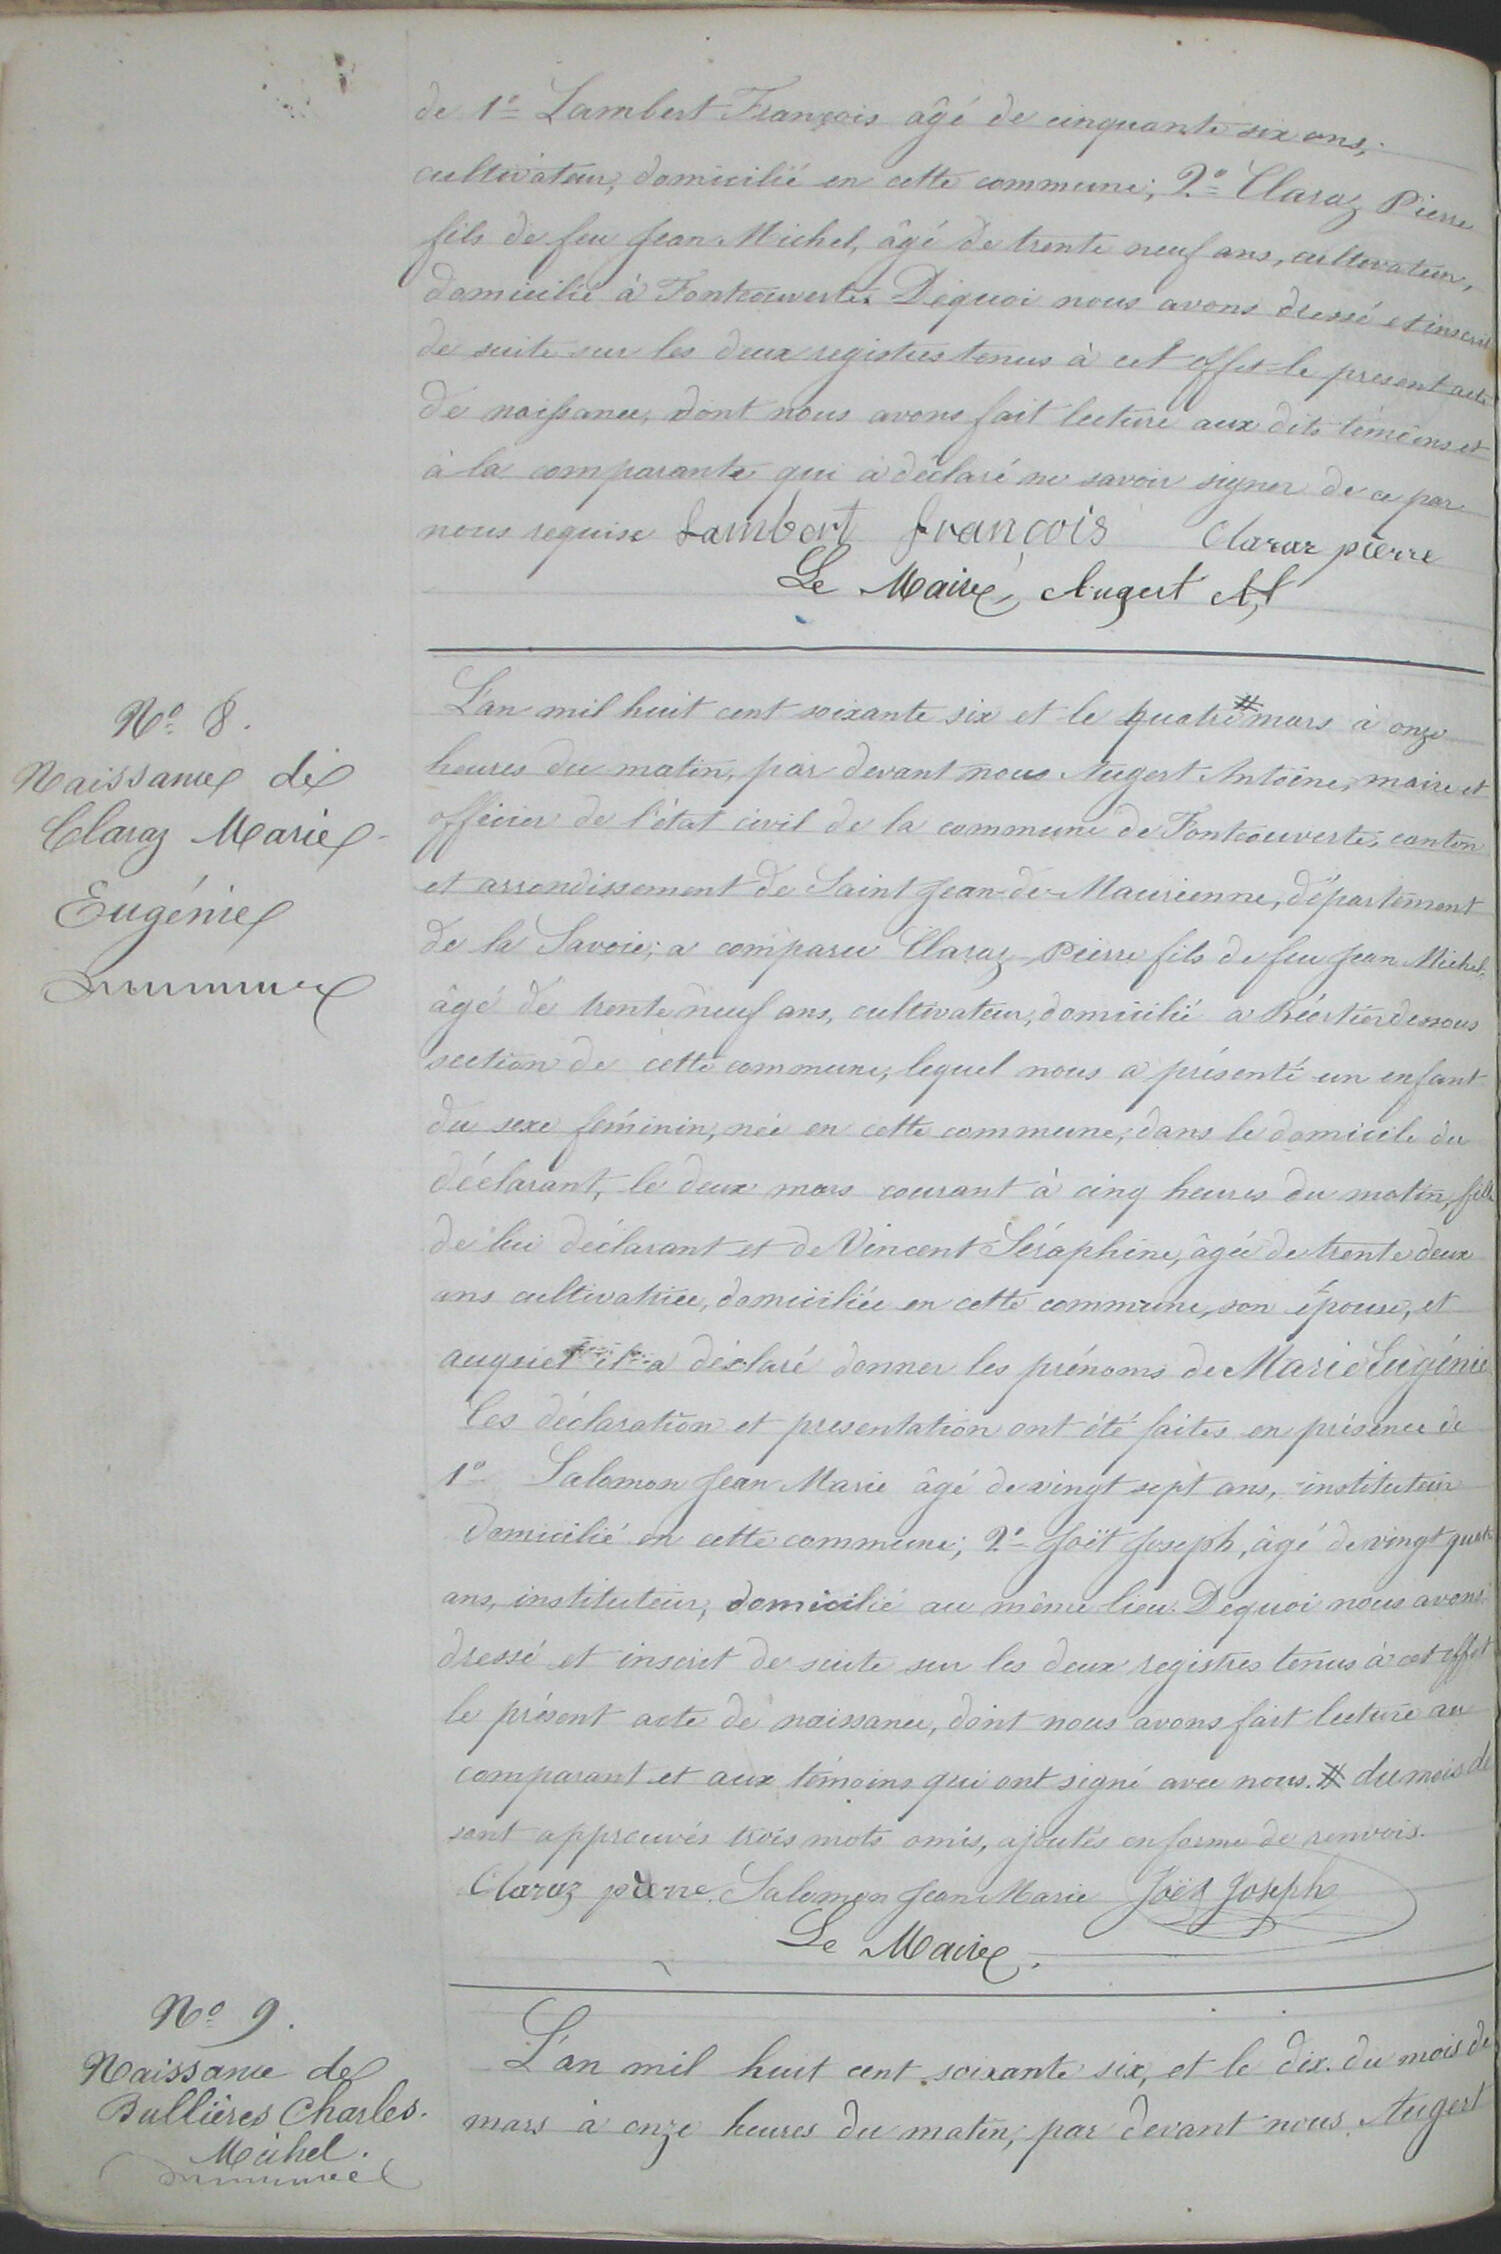 de 1º Lambert François âgé de cinquante six ans,
cultivateur, domicilié en cette commune; 2º Claraz Pierre
fils de feu Jean Michel, âgé de trente neuf ans, cultivateur,
domicilié à Fontcouverte. Dequoi nous avons dressé et inscrit
de suite sur les deux registres tenus à cet effet le présent acte
de naissance, dont nous avons fait lecture aux dits témoins et
à la comparante qui a déclaré ne savoir signer de ce par
nous requise Lambert françois Claraz pierre
Le Maire, Augert
Nº 8.
Naissance de
Claraz Marie
Eugénie
L'an mil huit cent soixante six et le quatre # mars à onze
heures du matin, par devant nous Augert Antoine, maire et
officier de l'état civil de la commune de Fontcouverte, canton
et arrondissement de Saint Jean-de-Maurienne, département
de la Savoie; a comparu Claraz Pierre fils de feu Jean Michel,
âgé de trente neuf ans, cultivateur, domicilié a dessous
section de cette commune, lequel nous a présenté un enfant
du sexe féminin, née en cette commune, dans le domicile du
déclarant, le deux mars courant à cinq heures du matin, fille
de lui déclarant et de Vincent Séraphine, âgée de trente deux
ans cultivatrice, domiciliée en cette commune, son épouse, et
auquel il a déclaré donner les prénoms de Marie Eugénie
Ces déclaration et presentation ont été faites en présence de
1º Salomon Jean Marie âgé de vingt sept ans, instituteur
domicilié en cette commune; 2º Joët Joseph, âgé de vingt quatre
ans, instituteur, domicilié au même lieu. Dequoi nous avons
dressé et inscrit de suite sur les deux registres tenus à cet effet
le présent acte de naissance, dont nous avons fait lecture au
comparant et aux témoins qui ont signé avec nous. # du mois de
sont approuvés trois mots omis, ajoutés en forme de renvois.
Claraz pierre. Salomon Jean Marie Joët Joseph
Le Maire.
Nº 9.
Naissance de
Bullières Charles.
Michel.
L'an mil huit cent soixante six, et le dix du mois de
mars à onze heures du matin, par devant nous Augert